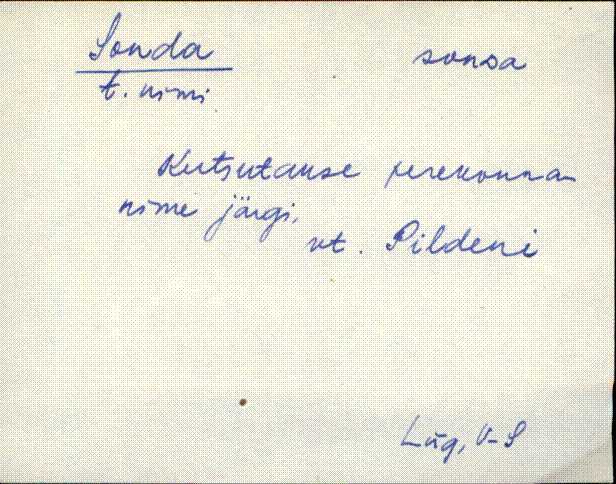 Sonda sonsa
t. nimi
Kutsutakse perekonna-
nime järgi,
vt. Pildeni
Lüg, V-S